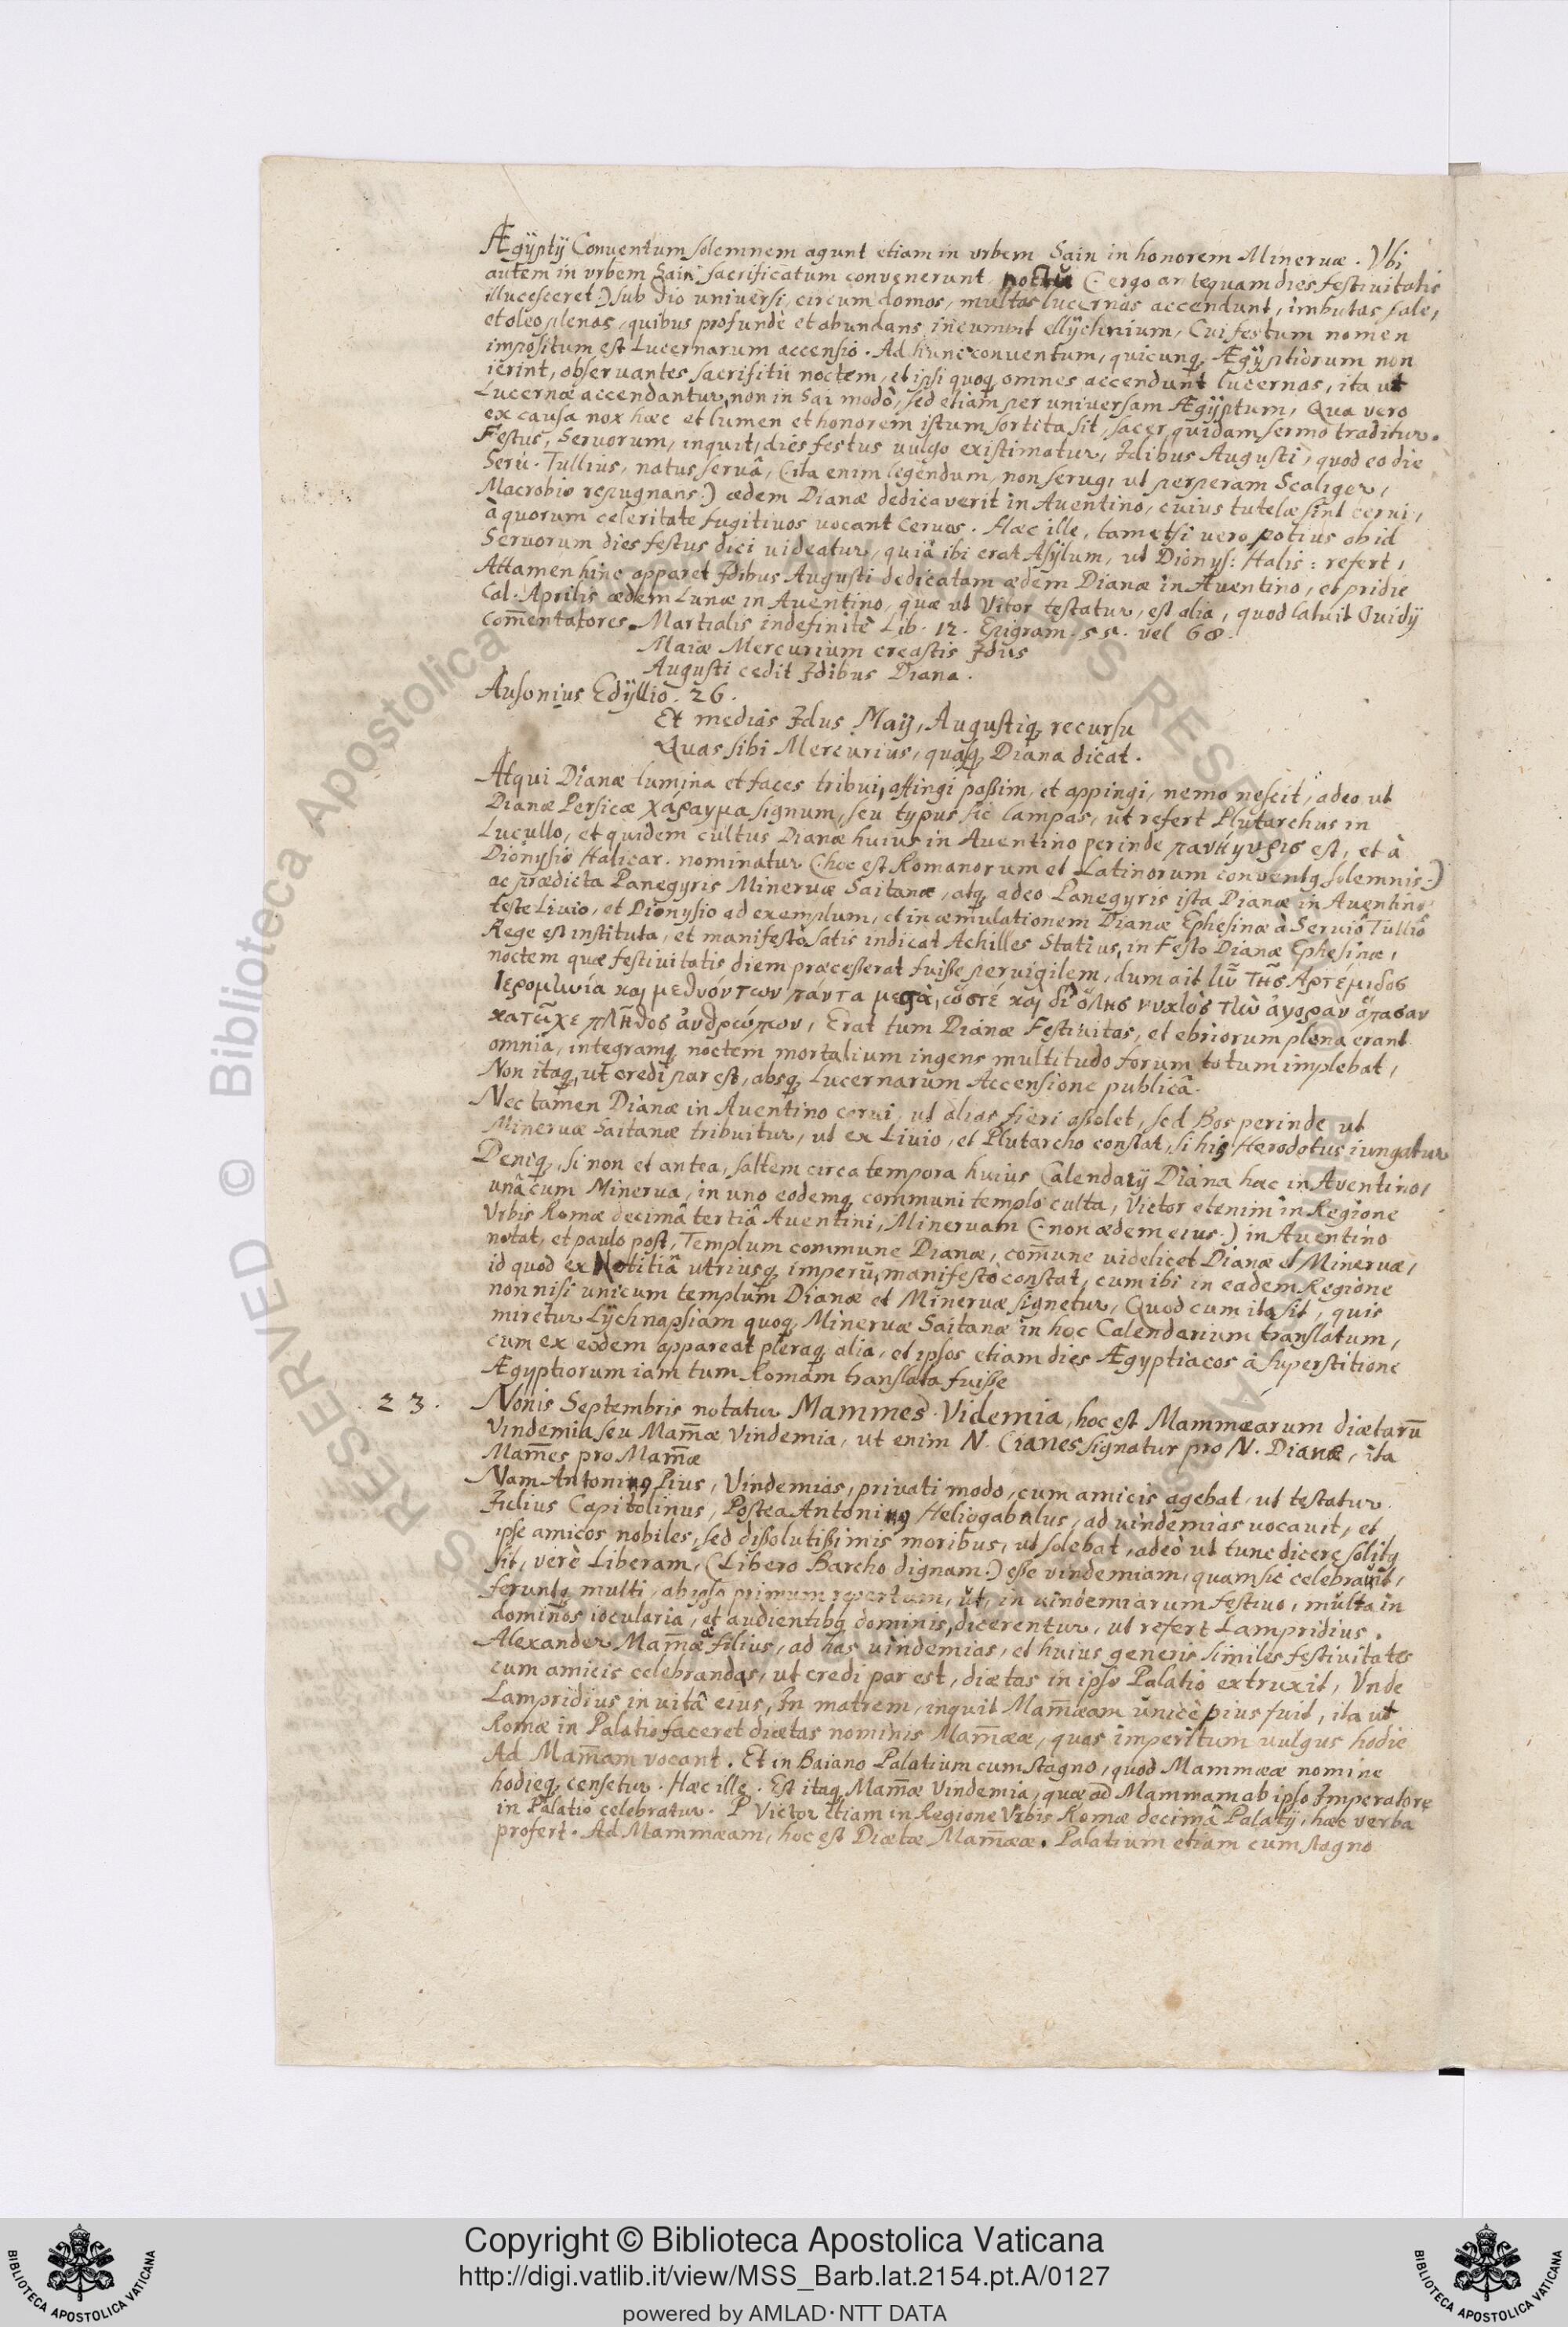 Ægÿptij Conventum solemnem agunt etiam in urbem Sain in honorem Minervæ. Vbi
autem in vrbem Sain sacrificatum convenerunt noctu (: ergo antequam dies festivitatis
illucesceret:) sub dio universi, circum domos, multas lucernas accendunt, imbutas sale,
et oleo plenas, quibus profundè et abundans incumbit ellÿchnium, Cui festum nomen
impositum est Lucernarum accensio. Ad hunc conventum, quicunq, Ægÿptiorum non
ierint, observantes sacrifitii noctem, et ipsi quoq, omnes accendunt lucernas, ita ut
Lucernæ accendantur, non in Sai modò, sed etiam per universam Ægÿptum, Qua vero
ex causa nox hæc et lumen et honorem istum sortita sit, sacer quidam sermo traditur.
Festus, Servorum, inquit, dies festus vulgo existimatur, Idibus Augusti, quod eo die
Serù. Tullius, natus servâ, (ita enim legendum, non servus, ut perperam Scaliger,
Macrobio repugnans:) ædem Dianæ dedicaverit in Aventino, cuius tutelæ sint cervi,
à quorum celeritate fugitivos vocant Cervos. Hæc ille, tametsi vero potius ob id
Servorum dies festus dici videatur, quià ibi erat Asÿlum, ut Dionys: Halis: refert,
Attamen hinc apparet Idibus Augusti dedicatam ædem Dianæ in Aventino, et pridie
Cal. Aprilis ædem Lunæ in Aventino, quæ ut Vitor testatur, est alia, quod latuit Ouidÿ
com̄entatores. Martialis indefinitè Lib. 12. Epigram. 55. vel 68.
Maiæ Mercurium creastis Idus
Augusti cedit Idibus Diana.
Ausonius Edÿllio. 26.
Et medias Idus Maij, Augustiq, recursu
Quas sibi Mercurius, quasq, Diana dicat.
Atqui Dianæ lumina et faces tribui, affingi paßim, et appingi, nemo nescit, adeo ut
Dianæ Persicæ χάραγμα signum, seu typus sic lampas, ut refert Plutarchus in
Lucullo, et quidem cultus Dianæ huius in Aventino perinde πανήγυρις est, et à
Dionysio Halicar. nominatur (: hoc est Romanorum et Latinorum conventq solemnis:)
ac prædicta Panegyris Minervæ Saitanæ, atq, adeo Panegyris ista Dianæ in Aventino
teste Livio, et Dionysio ad exemplum, et in æmulationem Dianæ Ephesinæ à Servio Tullio
Rege est instituta, et manifestò satis indicat Achilles Statius, in Festo Dianæ Ephesinæ,
noctem quæ festivitatis diem præcesserat fuiße pervigilem, dum ait ἦν τῆς Αρτέμιδος
Ιερομηνία καὶ μεθυόντων πάντα μεστὰ, ὡστέ καὶ δι᾽ ὅλης νυκτὸς τὴν ἀγορὰν ἅπασαν
κατεῖχε πλῆθος ἀνθρώπων, Erat tum Dianæ Festivitas, et ebriorum plena erant
omnia, integramq, noctem mortalium ingens multitudo forum totum implebat,
Non itaq, ut credi par est, absq, Lucernarum Accensione publicâ.
Nec tamen Dianæ in Aventino cervi, ut alias fieri aßolet, sed Bos perinde ut
Minervæ Saitanæ tribuitur, ut ex Livio, et Plutarcho constat, si his Herodotus iungatur
Deniq, si non et antea, saltem circa tempora huius Calendarij Diana hæc in Aventino,
unâ cum Minerva, in uno eodemq, communi templo culta, Victor etenim in Regione
Vrbis Romæ decimâ tertiâ Aventini, Minervam (: non ædem eius:) in Aventino
notat, et paulo post, Templum commune Dianæ, com̄une videlicet Dianæ et Minervæ,
id quod ex Notitiâ utriusq, imperii, manifestò constat, cum ibi in eadem Regione
non nisi unicum templum Dianæ et Minervæ signetur, Quod cum ita sit, quis
miretur Lÿchnapsiam quoq, Minervæ Saitanæ in hoc Calendarium translatum,
cum ex eodem appareat pleraq, alia, et ipsos etiam dies Ægyptiacos à superstitione
Ægyptiorum iam tum Romam translata fuiße
23. Nonis Septembris notatur Mammes. Videmia, hoc est Mammæarum diætarū
Vindemia seu Mam̄æ Vindemia, ut enim N. Cianes signatur pro N. Dianæ, ita
Mam̄es pro Mam̄æ
Nam Antoninq Pius, Vindemias, privati modo, cum amicis agebat, ut testatur
Iulius Capitolinus, Postea Antoninq Heliogabalus, ad vindemias vocavit, et
ipse amicos nobiles, sed dißolutißimis moribus, ut solebat, adeò ut tunc dicere solitq
sit, verè Liberam, (Libero Barcho dignam:) esse vindemiam, quam sic celebravit,
feruntq multi, ab ipso primum repertum, ut, in vindemiarum festivo, multa in
dominos iocularia, et audientibq dominis, dicerentur, ut refert Lampridius.
Alexander Mam̄ææ filius, ad has vindemias, et huius generis similes festivitates
cum amicis celebrandas, ut credi par est, diætas in ipso Palatio extruxit, Vnde
Lampridius in vitâ eius, In matrem, inquit Mam̄æam unicè pius fuit, ita ut
Romæ in Palatio faceret diætas nominis Mam̄ææ, quas imperitum vulgus hodie
Ad Mam̄am vocant. Et in Baiano Palatium cum stagno, quod Mammææ nomine
hodieq, censetur. Hæc ille. Est itaq, Mam̄æ Vindemia, quæ ad Mammam ab ipso Imperatore
in Palatio celebratur. P Victor etiam in Regione Vrbis Romæ decimâ Palatij, hæc verba
profert. Ad Mammæam, hoc est Diætæ Mam̄ææ. Palatium etiam cum stagno
Copyright © Biblioteca Apostolica Vaticana
http://digi.vatlib.it/view/MSS_Barb.lat.2154.pt.A/0127
powered by AMLAD·NTT DATA